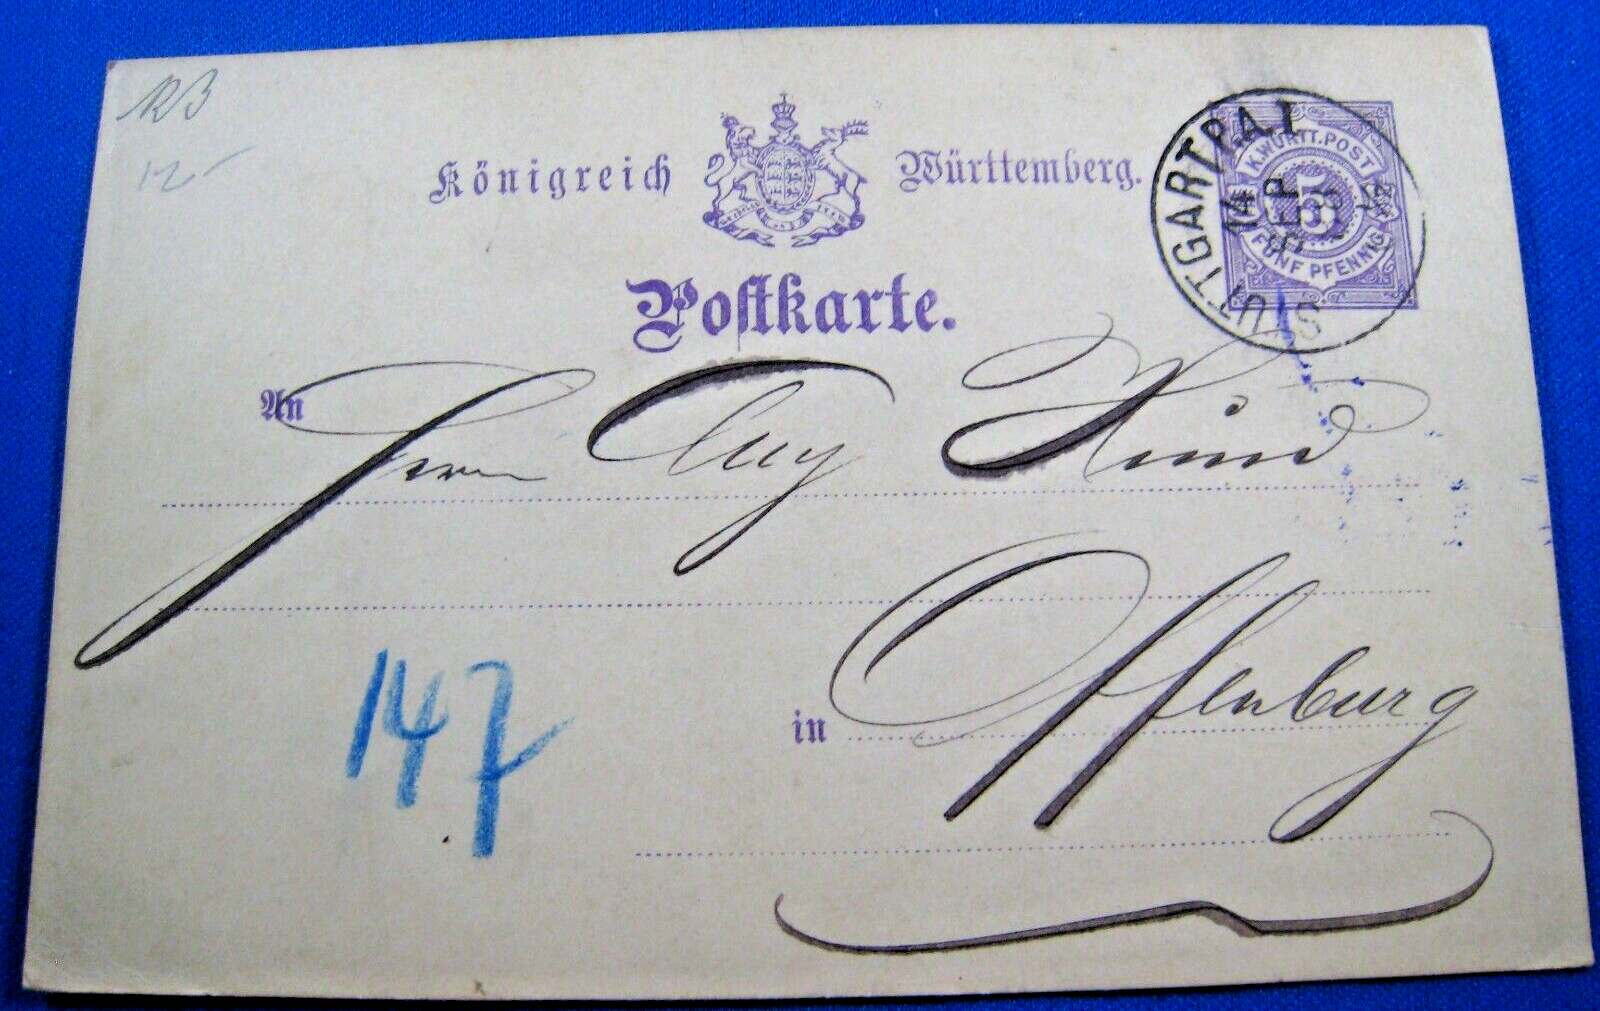 12-
Königreich Württemberg.
STUTTGART P.A. I
14
K. WÜRTT. POST
5
FÜNF PFENNIG
Postkarte.
An Herrn Aug Hund
in Offenburg
147